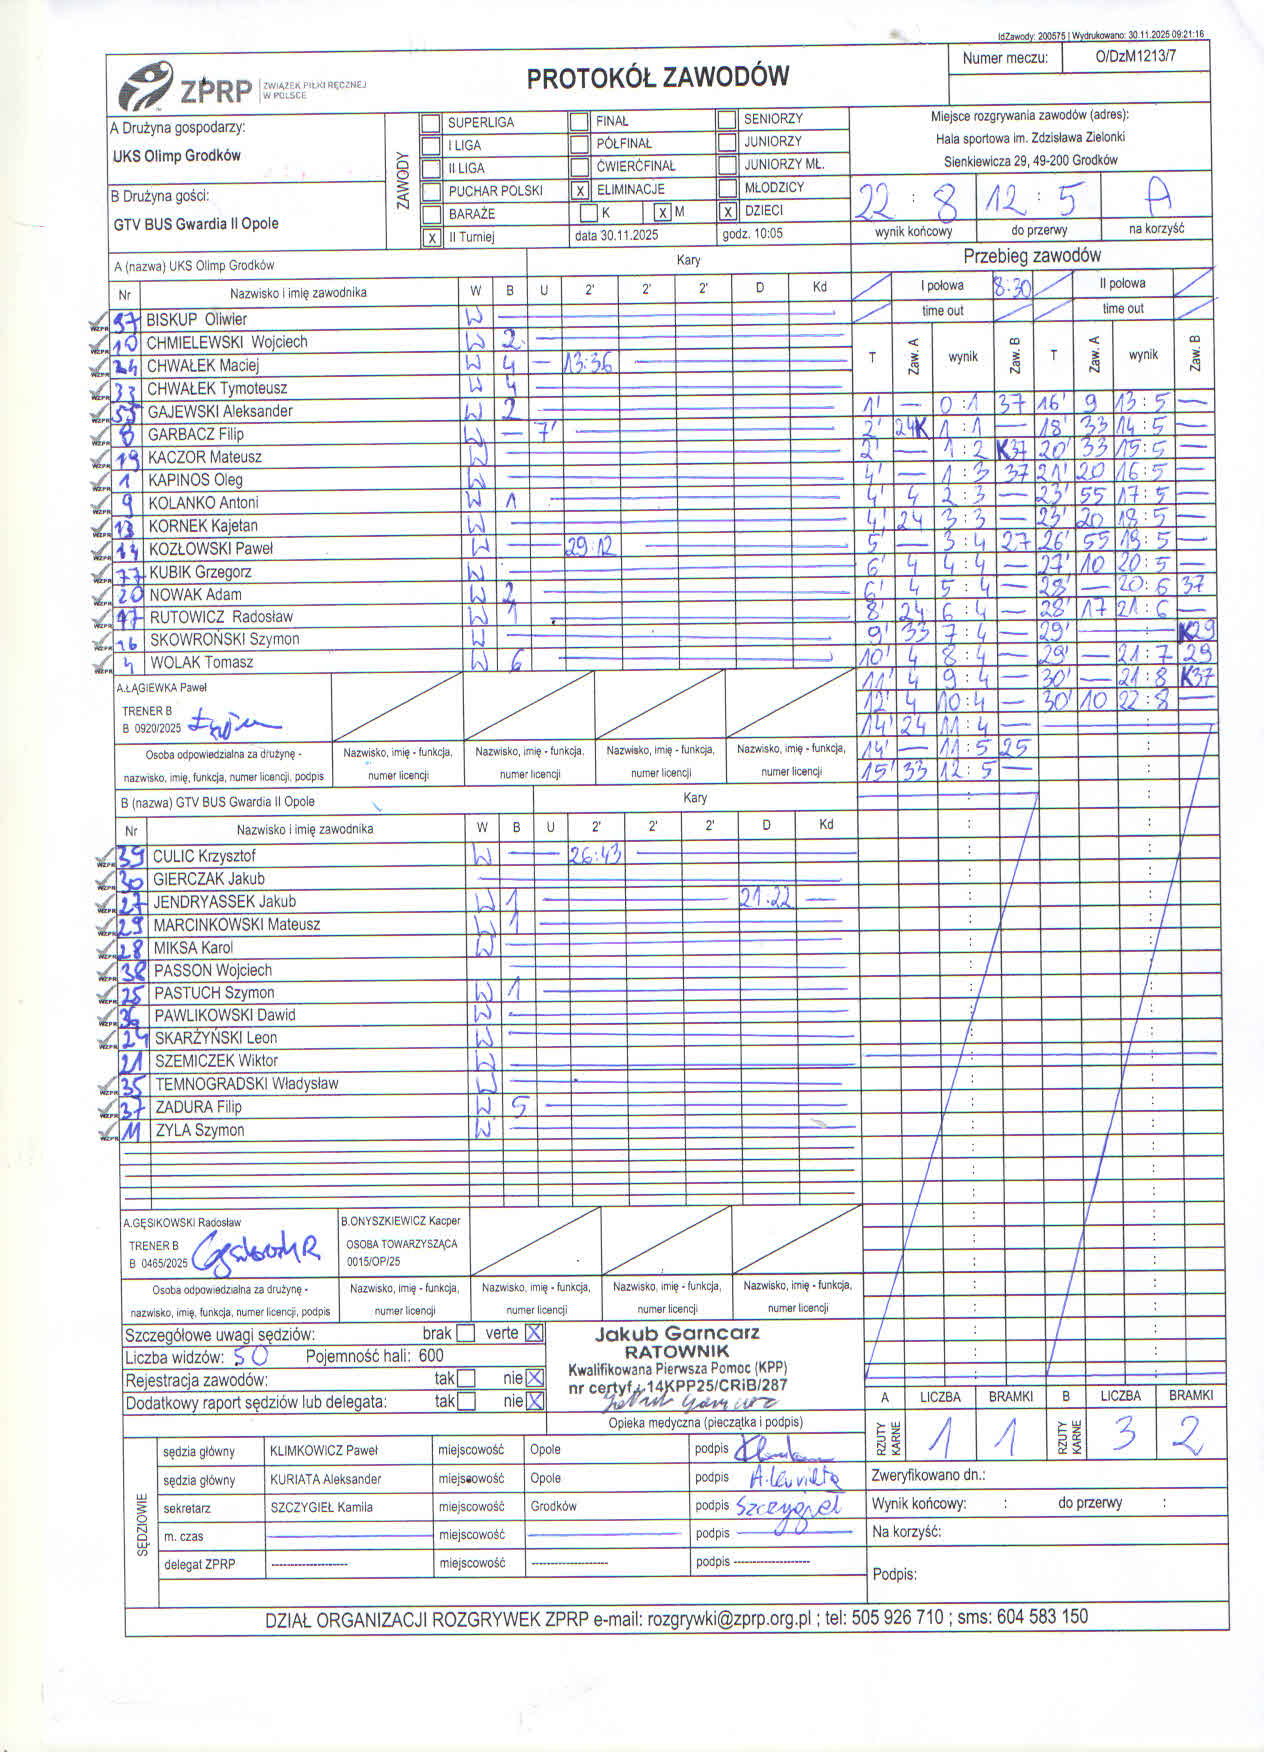 IdZawody: 200575 | Wydrukowano: 30.11.2025 09:21:16
ZPRP ZWIĄZEK PIŁKI RĘCZNEJ W POLSCE
PROTOKÓŁ ZAWODÓW
Numer meczu: O/DzM1213/7
A Drużyna gospodarzy:
UKS Olimp Grodków
B Drużyna gości:
GTV BUS Gwardia II Opole
ZAWODY
SUPERLIGA FINAŁ SENIORZY
I LIGA PÓŁFINAŁ JUNIORZY
II LIGA ĆWIERĆFINAŁ JUNIORZY MŁ.
PUCHAR POLSKI x ELIMINACJE MŁODZICY
BARAŻE K x M x DZIECI
x II Turniej data 30.11.2025 godz. 10:05
Miejsce rozgrywania zawodów (adres):
Hala sportowa im. Zdzisława Zielonki
Sienkiewicza 29, 49-200 Grodków
22 : 8 12 : 5 A
wynik końcowy do przerwy na korzyść
A (nazwa) UKS Olimp Grodków Kary
Nr Nazwisko i imię zawodnika W B U 2' 2' 2' D Kd
37 BISKUP Oliwier W
10 CHMIELEWSKI Wojciech W 2
24 CHWAŁEK Maciej W 4 13:36
33 CHWAŁEK Tymoteusz W 4
55 GAJEWSKI Aleksander W 2
8 GARBACZ Filip W 7'
19 KACZOR Mateusz W
1 KAPINOS Oleg W
9 KOLANKO Antoni W 1
13 KORNEK Kajetan W
14 KOZŁOWSKI Paweł W 29:12
77 KUBIK Grzegorz W
20 NOWAK Adam W 2
17 RUTOWICZ Radosław W 1
16 SKOWROŃSKI Szymon W
4 WOLAK Tomasz W 6
A.ŁĄGIEWKA Paweł
TRENER B
B 0920/2025
Osoba odpowiedzialna za drużynę - nazwisko, imię, funkcja, numer licencji, podpis
Nazwisko, imię - funkcja, numer licencji
Nazwisko, imię - funkcja, numer licencji
Nazwisko, imię - funkcja, numer licencji
Nazwisko, imię - funkcja, numer licencji
Przebieg zawodów
I połowa 8:30 II połowa
time out time out
T Zaw. A wynik Zaw. B T Zaw. A wynik Zaw. B
1' — 0:1 37 16' 9 13:5 —
2' 24K 1:1 — 18' 33 14:5 —
2' — 1:2 K37 20' 33 15:5 —
4' — 1:3 37 21' 20 16:5 —
4' 4 2:3 — 23' 55 17:5 —
4' 24 3:3 — 23' 20 18:5 —
5' — 3:4 27 26' 55 19:5 —
6' 4 4:4 — 27' 10 20:5 —
6' 4 5:4 — 28' — 20:6 37
8' 24 6:4 — 28' 17 21:6 —
9' 33 7:4 — 29' — : K29
10' 4 8:4 — 29' — 21:7 29
11' 4 9:4 — 30' — 21:8 K37
12' 4 10:4 — 30' 10 22:8 —
14' 24 11:4 —
14' — 11:5 25
15' 33 12:5 —
B (nazwa) GTV BUS Gwardia II Opole Kary
Nr Nazwisko i imię zawodnika W B U 2' 2' 2' D Kd
39 CULIC Krzysztof W 26:43
30 GIERCZAK Jakub
27 JENDRYASSEK Jakub W 1 21:22
29 MARCINKOWSKI Mateusz W 1
28 MIKSA Karol W
38 PASSON Wojciech
25 PASTUCH Szymon W 1
36 PAWLIKOWSKI Dawid W
24 SKARŻYŃSKI Leon W
21 SZEMICZEK Wiktor W
35 TEMNOGRADSKI Władysław W
37 ZADURA Filip W 5
11 ZYLA Szymon W
A.GĘSIKOWSKI Radosław
TRENER B
B 0465/2025
B.ONYSZKIEWICZ Kacper
OSOBA TOWARZYSZĄCA
0015/OP/25
Osoba odpowiedzialna za drużynę - nazwisko, imię, funkcja, numer licencji, podpis
Nazwisko, imię - funkcja, numer licencji
Nazwisko, imię - funkcja, numer licencji
Nazwisko, imię - funkcja, numer licencji
Nazwisko, imię - funkcja, numer licencji
Szczegółowe uwagi sędziów: brak verte X
Liczba widzów: 50 Pojemność hali: 600
Rejestracja zawodów: tak nie X
Dodatkowy raport sędziów lub delegata: tak nie X
Jakub Garncarz
RATOWNIK
Kwalifikowana Pierwsza Pomoc (KPP)
nr certyf. 14KPP25/CRiB/287
Opieka medyczna (pieczątka i podpis)
A LICZBA BRAMKI B LICZBA BRAMKI
RZUTY KARNE 1 1 RZUTY KARNE 3 2
SĘDZIOWIE
sędzia główny KLIMKOWICZ Paweł miejscowość Opole podpis
sędzia główny KURIATA Aleksander miejscowość Opole podpis A.Kuriata
sekretarz SZCZYGIEŁ Kamila miejscowość Grodków podpis Szczygieł
m. czas miejscowość podpis
delegat ZPRP -------------------- miejscowość -------------------- podpis --------------------
Zweryfikowano dn.:
Wynik końcowy: : do przerwy :
Na korzyść:
Podpis:
DZIAŁ ORGANIZACJI ROZGRYWEK ZPRP e-mail: rozgrywki@zprp.org.pl ; tel: 505 926 710 ; sms: 604 583 150